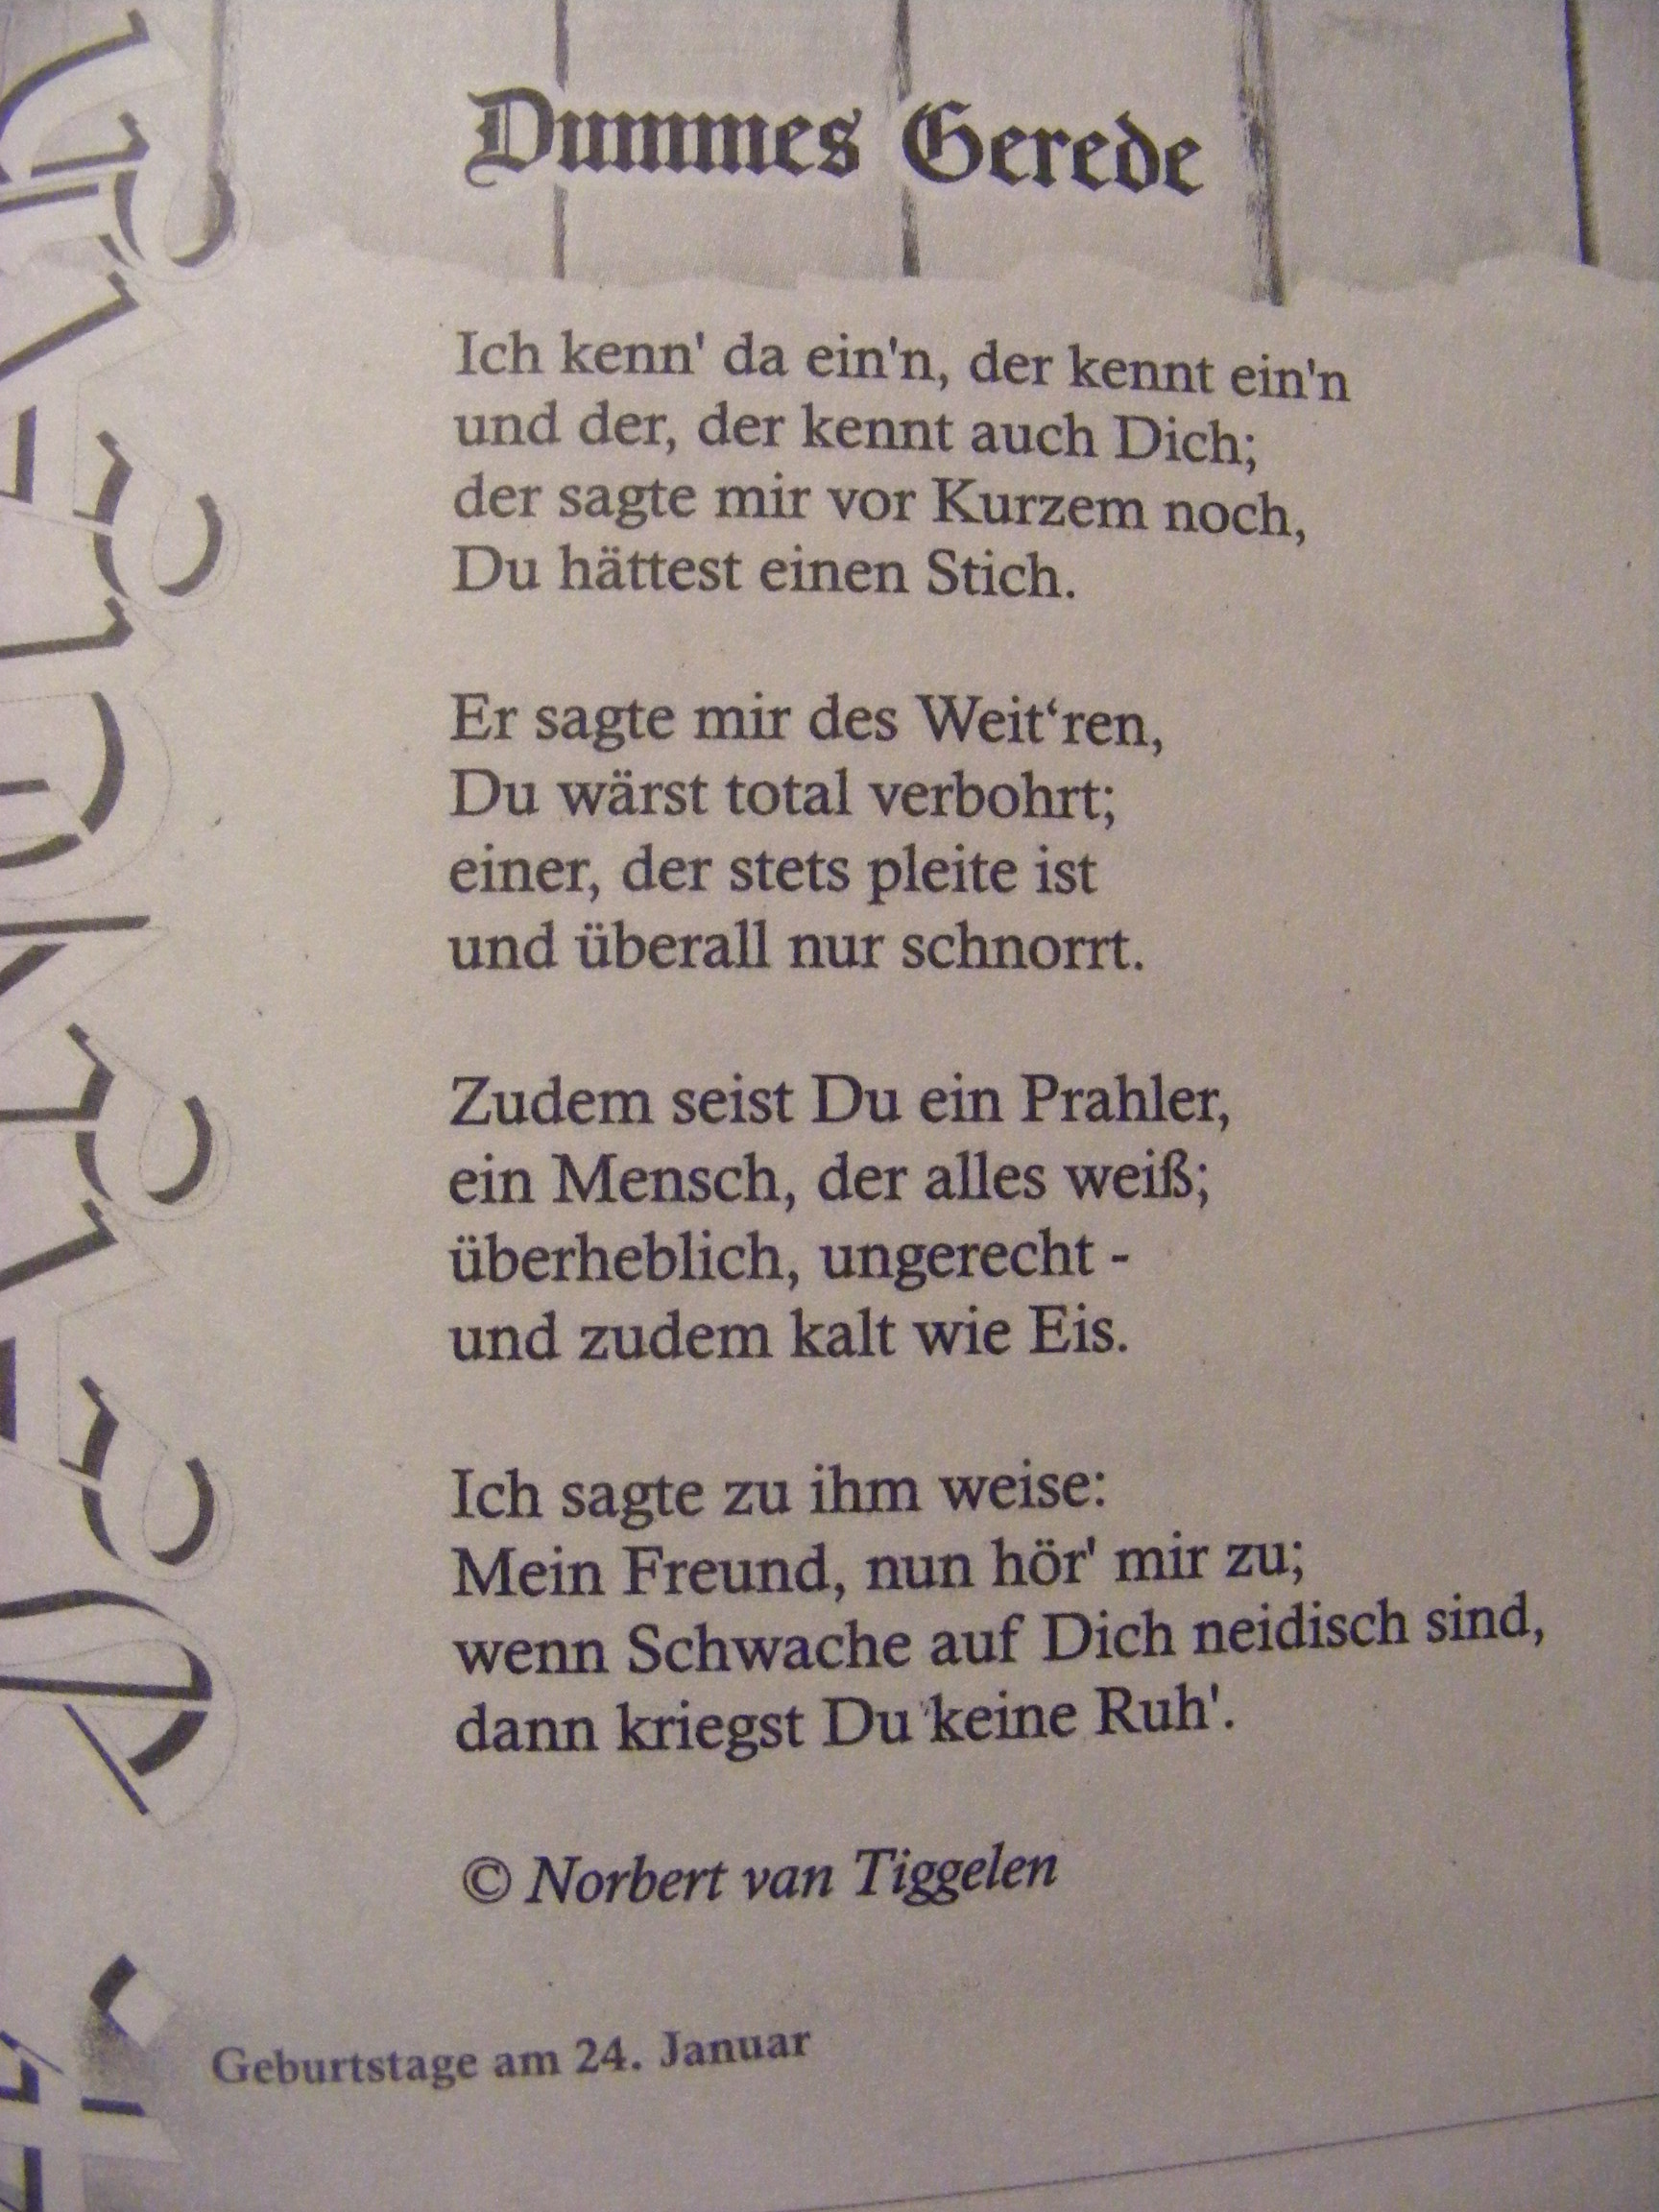 Dummes Gerede
Ich kenn' da ein'n, der kennt ein'n
und der, der kennt auch Dich;
der sagte mir vor Kurzem noch,
Du hättest einen Stich.
Er sagte mir des Weit‘ren,
Du wärst total verbohrt;
einer, der stets pleite ist
und überall nur schnorrt.
Zudem seist Du ein Prahler,
ein Mensch, der alles weiß;
überheblich, ungerecht -
und zudem kalt wie Eis.
Ich sagte zu ihm weise:
Mein Freund, nun hör' mir zu;
wenn Schwache auf Dich neidisch sind,
dann kriegst Du keine Ruh'.
© Norbert van Tiggelen
Geburtstage am 24. Januar